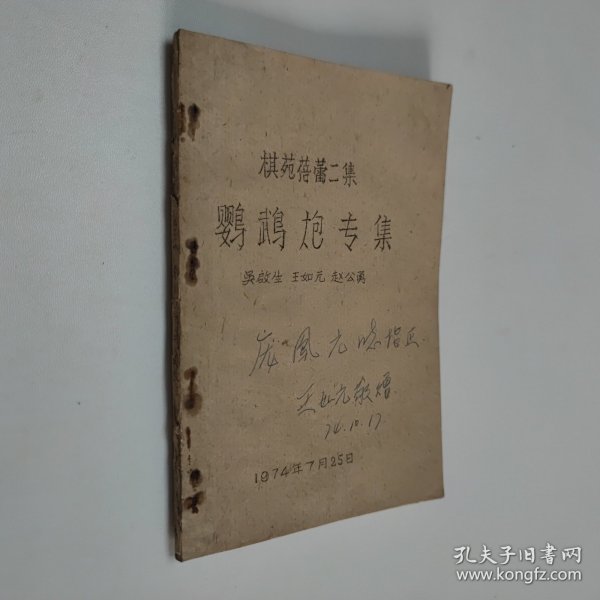 棋苑蓓蕾二集
鹦鹉炮专集
吳啟生 王如元 赵公勇
庞凤元 指正
王如元敬赠
74.10.17
1974年7月25日
孔夫子旧书网
www.kongfz.com